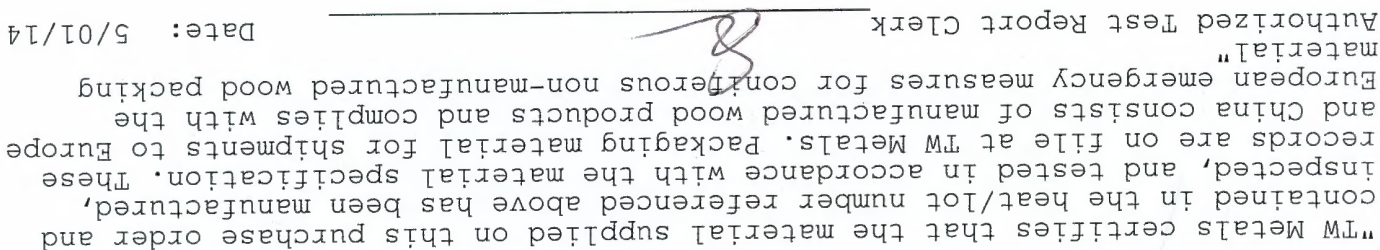 "TW Metals certifies that the material supplied on this purchase order and
contained in the heat/lot number referenced above has been manufactured,
inspected, and tested in accordance with the material specification. These
records are on file at TW Metals. Packaging material for shipments to Europe
and China consists of manufactured wood products and complies with the
European emergency measures for coniferous non-manufactured wood packing
material"
Authorized Test Report Clerk Date: 5/01/14